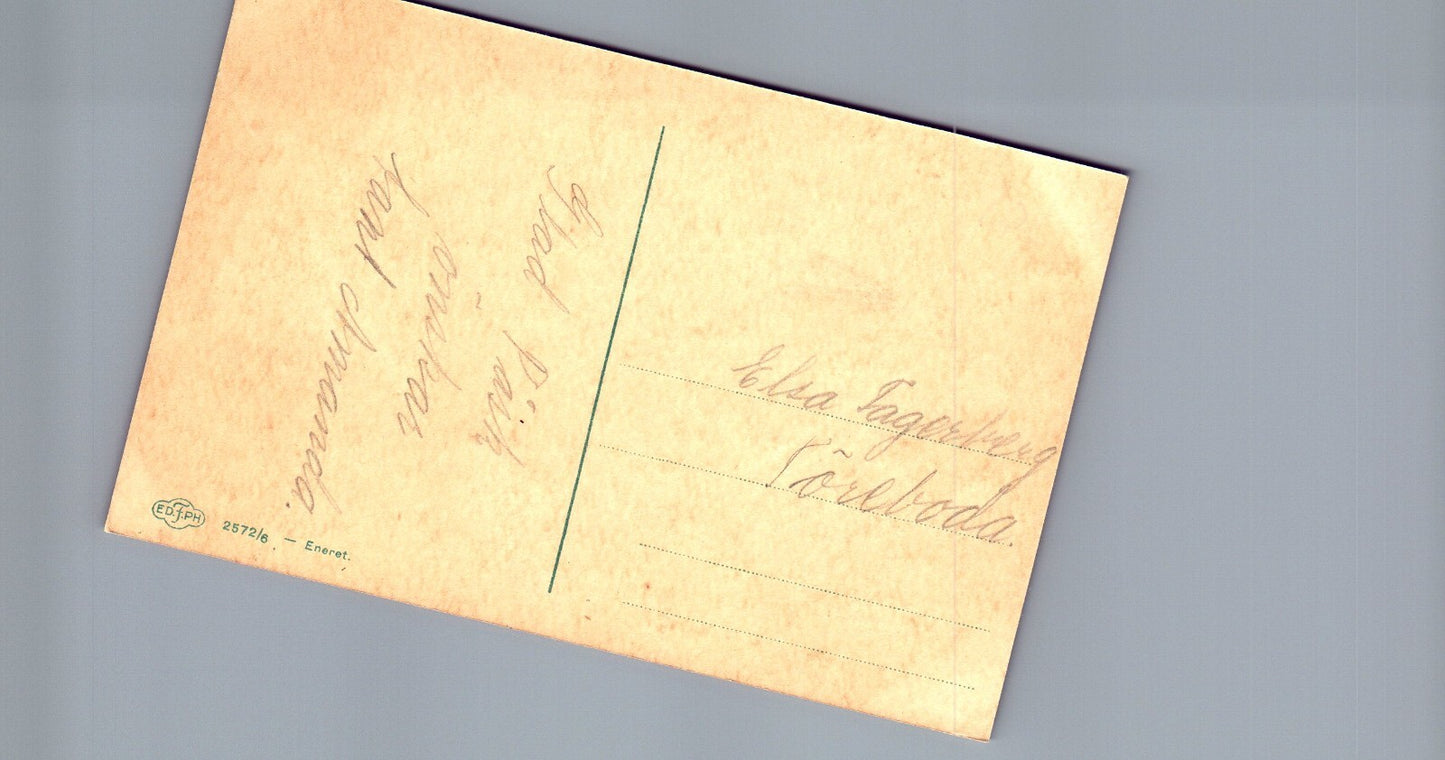 Glad Påsk
önskar
tant Amanda.
Elsa Fagerberg
Töreboda.
ED.F.PH
2572/6. — Eneret.